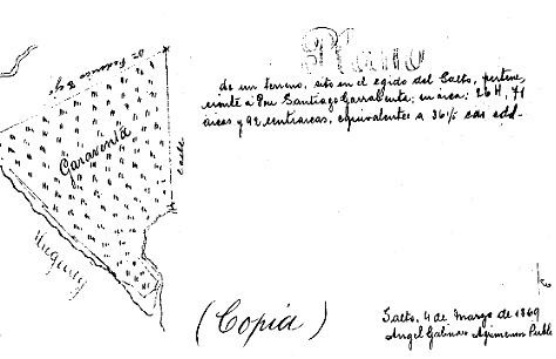 Plano
de un terreno, sito en el egido del Salto, pertene,
ciente á Don Santiago Garabenta; su área: 26 H, 71
áreas y 92 centiareas, equivalentes a 36½ cas edd.
Dn Federico
Calle
Garaventa
Uruguay
(Copia)
Salto, 4 de Marzo de 1869
Angel Agrimensor Públ